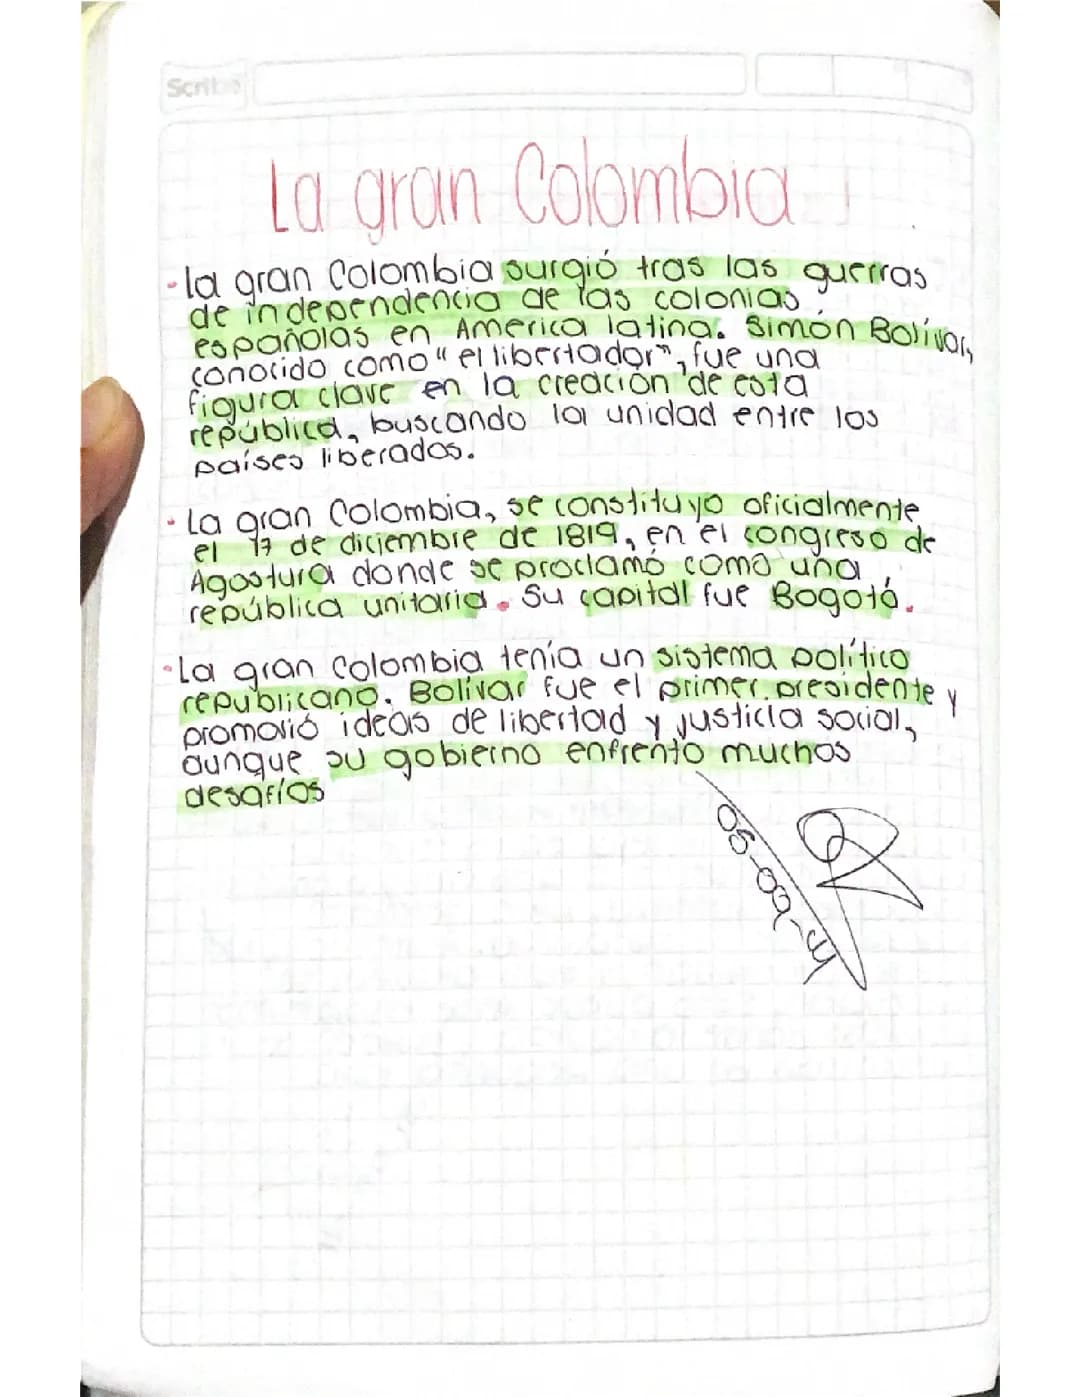 Scribe
La gran Colombia
- la gran Colombia surgió tras las guerras
de independencia de las colonias
españolas en America latina. Simón Bolívar,
conocido como "el libertador", fue una
figura clave en la creación de esta
república, buscando la unidad entre los
países liberados.
· La gran Colombia, se constituyo oficialmente
el 17 de diciembre de 1819, en el congreso de
Agostura donde se proclamó como una
república unitaria. Su capital fue Bogotá.
· La gran Colombia tenía un sistema político
republicano. Bolívar fue el primer presidente y
promovió ideas de libertad y justicia social,
aunque su gobierno enfrento muchos
desafíos